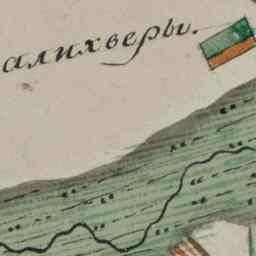 алихверы.